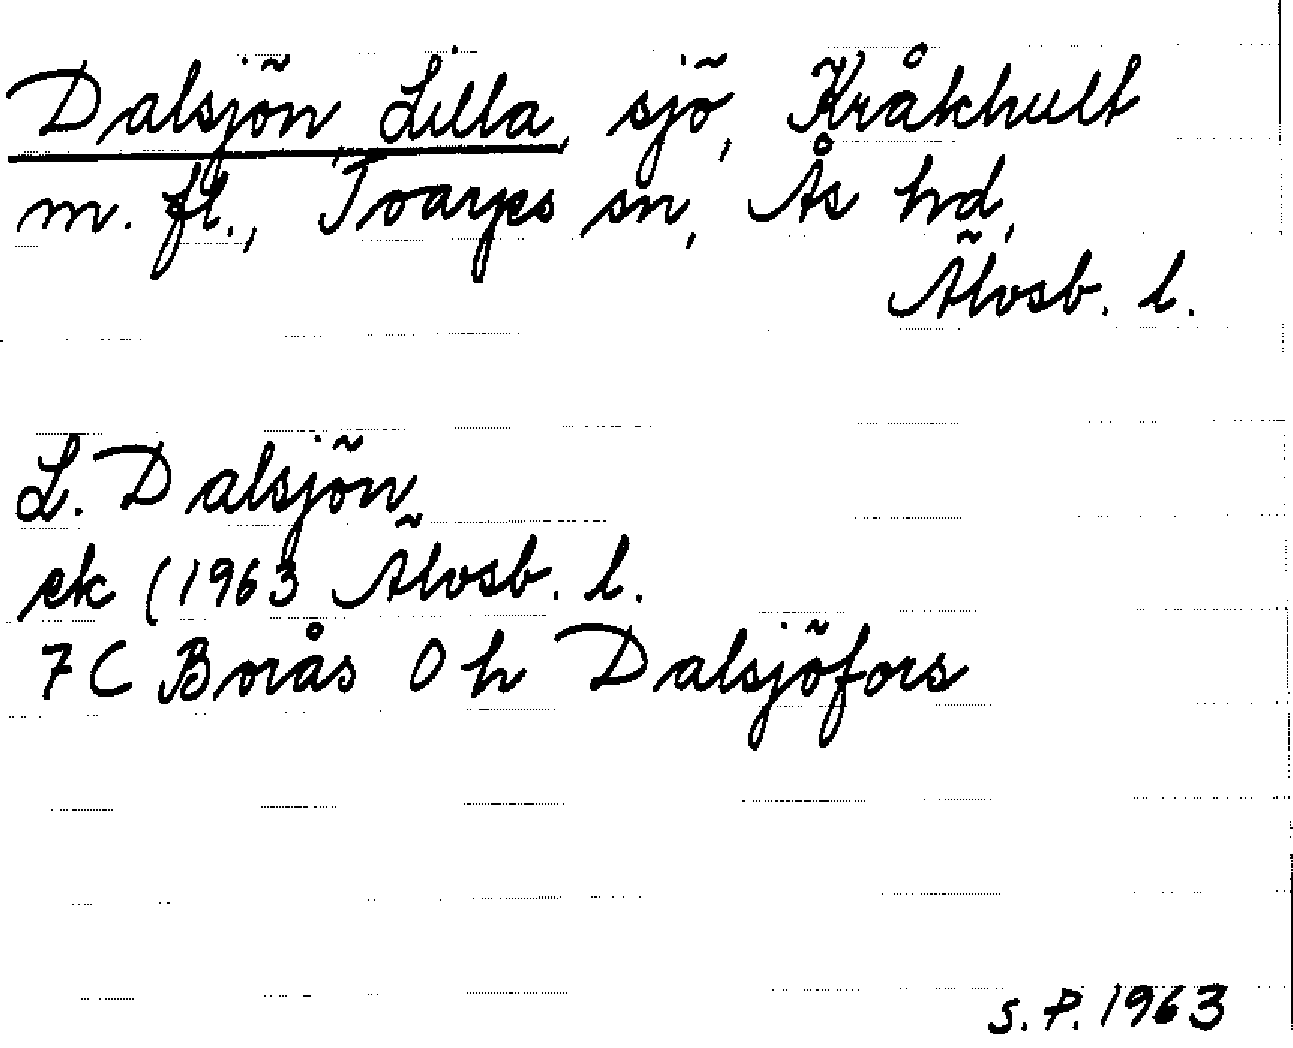 Dalsjön Lilla, sjö, Kråkhult
m. fl., Toarps sn, Ås hd,
Älvsb. l.
L. Dalsjön
ek (1963 Älvsb. l.
7C Borås 0 h Dalsjöfors
S.P. 1963